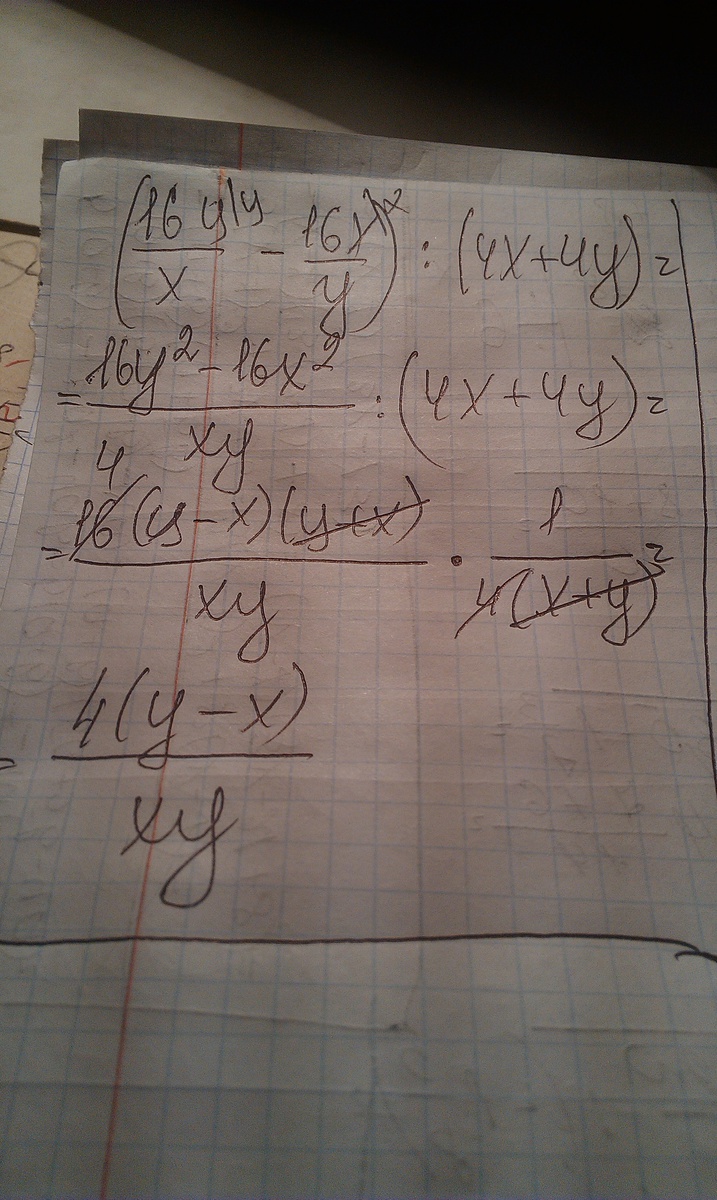 (16y\y/x - 16x\x/y) : (4x+4y) =
= 16y²-16x²/xy : (4x+4y) =
4
= 16(y-x)(y+x)/xy · 1/4(x+y) =
= 4(y-x)/xy